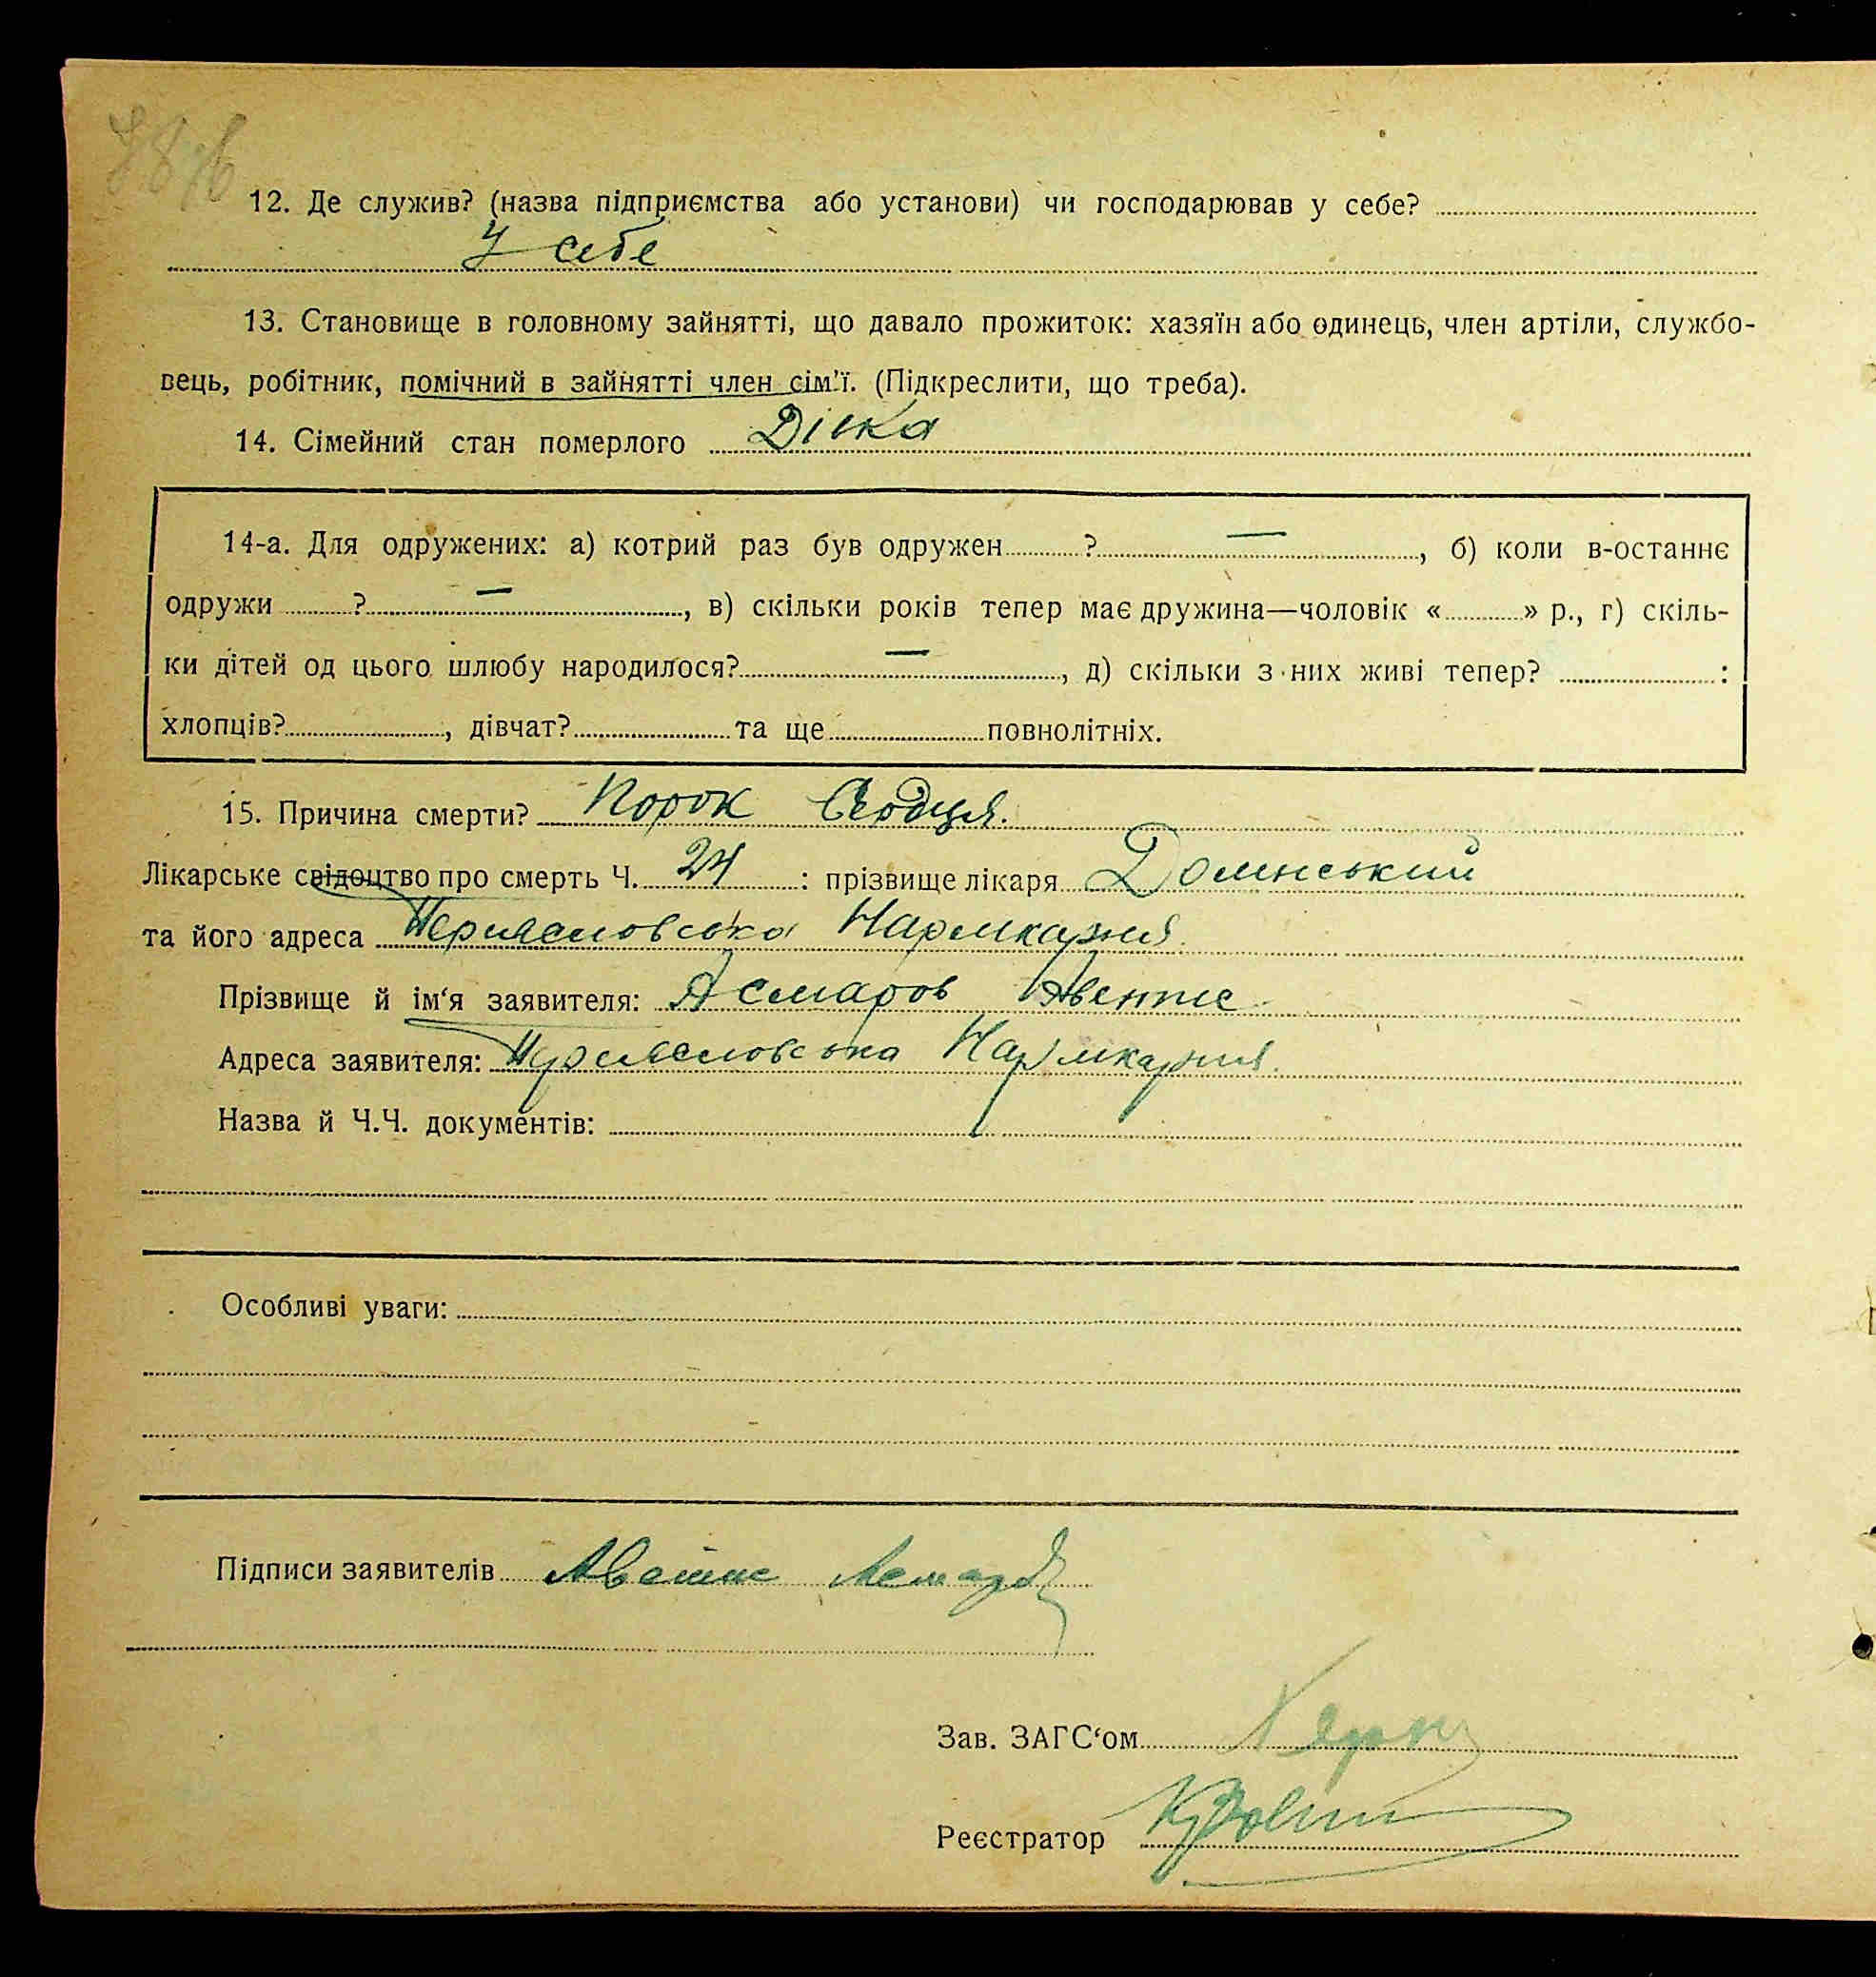 12. Де служив? (назва підприємства або установи) чи господарював у себе?
У себе
13. Становище в головному зайнятті, що давало прожиток: хазяїн або одинець, член артіли, службо-
вець, робітник, помічний в зайнятті член сім'ї. (Підкреслити, що треба).
14. Сімейний стан померлого Дівка
14-а. Для одружених: а) котрий раз був одружен ? —, б) коли в-останнє
одружи ? —, в) скільки років тепер має дружина—чоловік « » р., г) скіль-
ки дітей од цього шлюбу народилося? —, д) скільки з них живі тепер? :
хлопців? , дівчат? та ще повнолітніх.
15. Причина смерти? Порок Сердця.
Лікарське свідоцтво про смерть Ч. 24 : прізвище лікаря Долинський
та його адреса
Прізвище й ім‘я заявителя: Асмаров
Адреса заявителя:
Назва й Ч.Ч. документів:
Особливі уваги:
Підписи заявителів
Зав. ЗАГС‘ом
Реєстратор